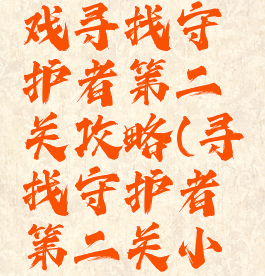 戏寻找守
护者第二
关攻略(寻
找守护者
第二关小